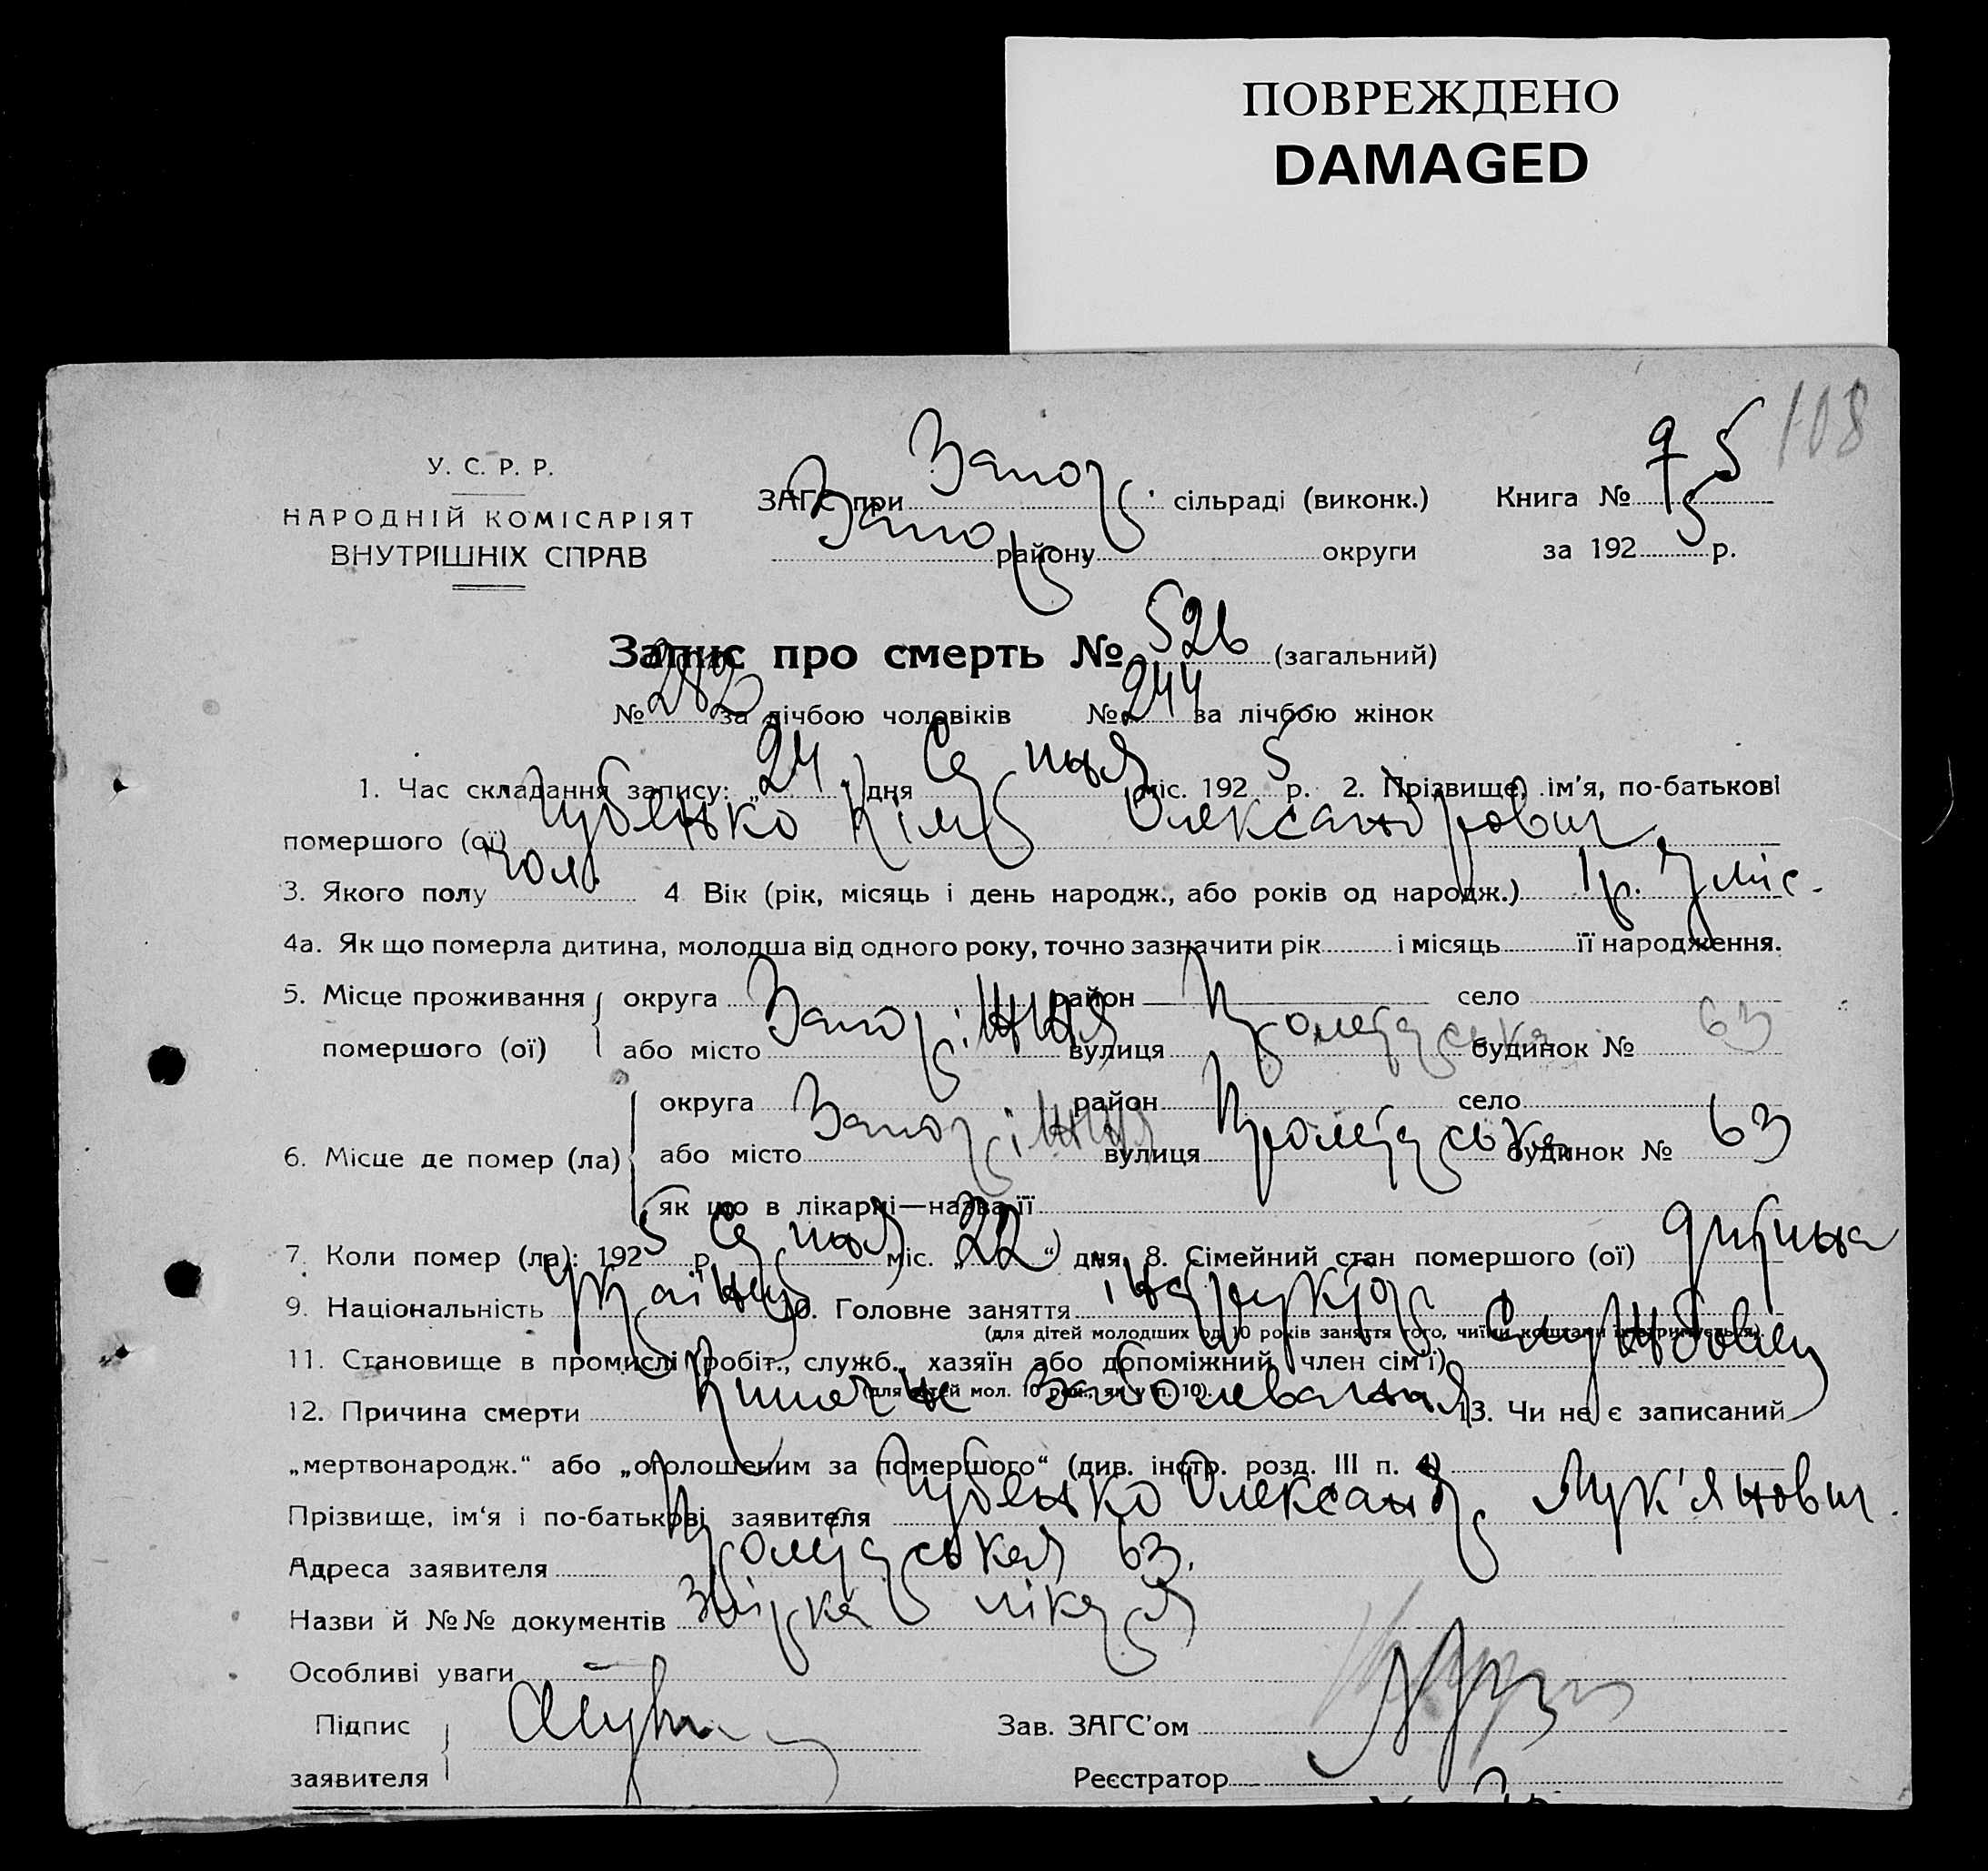 ПОВРЕЖДЕНО
DAMAGED
108
У. С. Р. Р.
НАРОДНІЙ КОМІСАРІЯТ
ВНУТРІШНІХ СПРАВ
ЗАГС при Запор. сільраді (виконк.)
Запор району округи
Книга № 5
за 1925 р.
Запис про смерть № 526 (загальний)
№ 282 за лічбою чоловіків № 244 за лічбою жінок
1. Час складання запису: „24“ дня Серпня міс. 1925 р. 2. Прізвище, ім'я, по-батькові
помершого (ої) Губенко Кім Олександрович
3. Якого полу чол. 4 Вік (рік, місяць і день народж., або років од народж.) 1 р. 7 міс.
4а. Як що померла дитина, молодша від одного року, точно зазначити рік і місяць її народження.
5. Місце проживання помершого (ої) округа район село
або місто Запоріжжя вулиця будинок № 63
6. Місце де помер (ла) округа район село
або місто Запоріжжя вулиця будинок № 63
як що в лікарні—назва її
7. Коли помер (ла): 1925 р. Серпня міс. „22“ дня 8. Сімейний стан помершого (ої) дитина
9. Національність Україн. 10. Головне заняття інструктор
(для дітей молодших од 10 років заняття того, чиїми коштами їх утримується).
11. Становище в промислі (робіт., служб., хазяїн або допоміжний член сім'ї) Службовец
(для дітей мол. 10 рок., як у п. 10).
12. Причина смерти заболевания 13. Чи не є записаний
„мертвонародж.“ або „оголошеним за помершого“ (див. інстр. розд. III п. 4)
Прізвище, ім'я і по-батькові заявителя Губенко Олександр Лук'янович.
Адреса заявителя 63.
Назви й №№ документів лікаря
Особливі уваги —
Підпис заявителя
Зав. ЗАГС'ом
Реєстратор